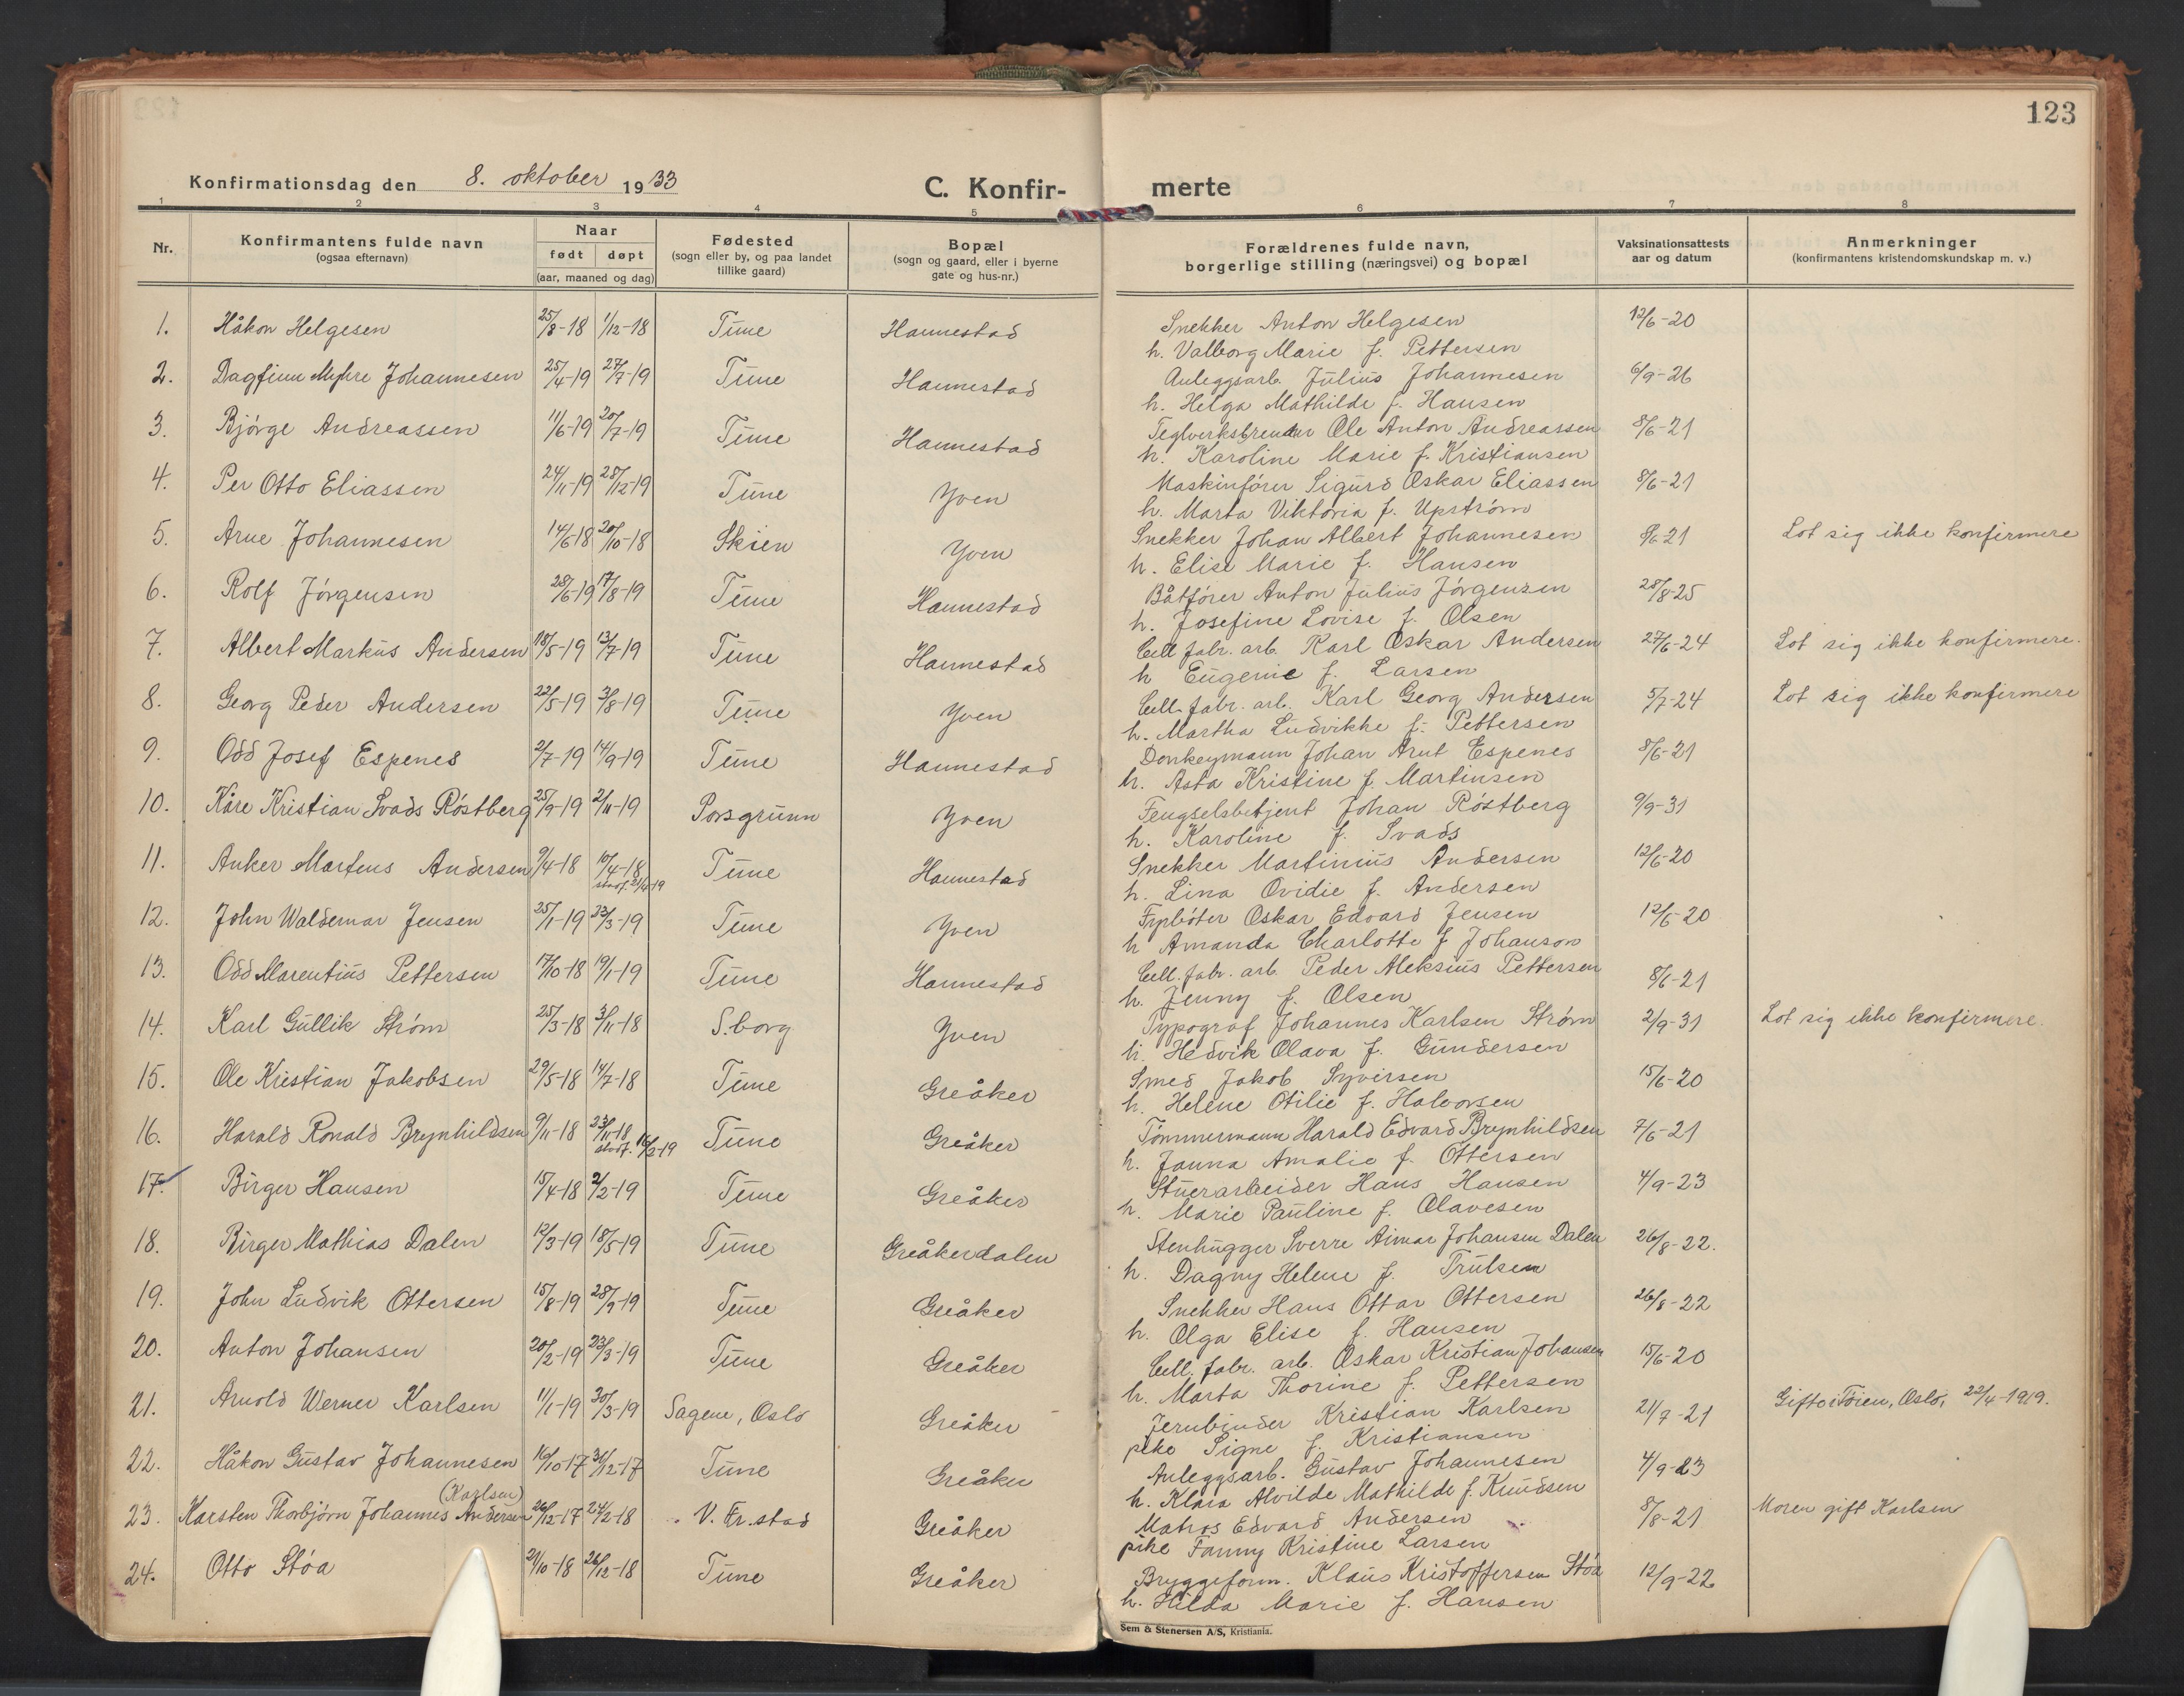 123
Konfirmationsdag den 8. oktober 1933
C. Konfir- merte
1 2 3 4 5 6 7 8
Nr. | Konfirmantens fulde navn (ogsaa efternavn) | Naar født døpt (aar, maaned og dag) | Fødested (sogn eller by, og paa landet tillike gaard) | Bopæl (sogn og gaard, eller i byerne gate og hus-nr.) | Forældrenes fulde navn, borgerlige stilling (næringsvei) og bopæl | Vaksinationsattests aar og datum | Anmerkninger (konfirmantens kristendomskundskap m. v.)
1. Håkon Helgesen 25/8-18 1/12-18 Tune Hannestad Snekker Anton Helgesen 12/6-20
h. Valborg Marie f. Pettersen
2. Dagfinn Myhre Johannesen 25/4-19 27/7-19 Tune Hannestad Anleggsarb. Julius Johannesen 6/9-26
h. Helga Mathilde f. Hansen
3. Bjørge Andreassen 11/6-19 20/7-19 Tune Hannestad Teglverksbrenner Ole Anton Andreassen 8/6-21
h. Karoline Marie f. Kristiansen
4. Per Otto Eliassen 24/11-19 28/12-19 Tune Yven Maskinfører Sigurd Oskar Eliassen 8/6-21
h. Marta Viktoria f. Upstrøm
5. Arne Johannesen 14/6-18 20/10-18 Skien Yven Snekker Johan Albert Johannesen 8/6-21 Lot sig ikke konfirmere
h. Elise Marie f. Hansen
6. Rolf Jørgensen 28/6-19 17/8-19 Tune Hannestad Båtfører Anton Julius Jørgensen 28/8-25
h. Josefine Lovise f. Olsen
7. Albert Markus Andersen 18/5-19 13/7-19 Tune Hannestad Cell. fabr. arb. Karl Oskar Andersen 27/6-24 Lot sig ikke konfirmere.
h Eugenie f. Larsen
8. Georg Peder Andersen 22/5-19 3/8-19 Tune Yven Cell. fabr. arb. Karl Georg Andersen 5/7-24 Lot sig ikke konfirmere
h. Martha Ludvikke f. Pettersen
9. Odd Josef Espenes 2/7-19 14/9-19 Tune Hannestad Donkeymann Johan Arnt Espenes 8/6-21
h. Asta Kristine f. Martinsen
10. Kåre Kristian Svads Røstberg 25/9-19 2/11-19 Porsgrunn Yven Fengselsbetjent Johan Røstberg 9/9-31
h. Karoline f. Svads
11. Anker Martens Andersen 9/4-18 10/4-18 stadf. 21/4-19 Tune Hannestad Snekker Martinius Andersen 12/6-20
h. Lina Ovidie f. Andersen
12. John Waldemar Jensen 25/1-19 23/3-19 Tune Yven Fyrbøter Oskar Edvard Jensen 12/6-20
h Amanda Charlotte f Johanson
13. Odd Marentius Pettersen 17/10-18 19/1-19 Tune Hannestad Cell. fabr. arb. Peder Aleksius Pettersen 8/6-21
h. Jenny f. Olsen
14. Karl Gullik Strøm 25/3-18 3/11-18 S.borg Yven Typograf Johannes Karlsen Strøm 2/9-31 Lot sig ikke konfirmere.
h. Hedvik Olava f. Gundersen
15. Ole Kristian Jakobsen 29/5-18 14/7-18 Tune Greåker Smed Jakob Syversen 15/6-20
h. Helene Otilie f. Halvorsen
16. Harald Ronald Brynhildsen 9/11-18 23/11-18 stadf. 16/2-19 Tune Greåker Tømmermann Harald Edvard Brynhildsen 7/6-21
h. Janna Amalie f. Ottersen
17. Birger Hansen 15/4-18 2/2-19 Tune Greåker Stuerarbeider Hans Hansen 4/9-23
h. Marie Pauline f. Olavesen
18. Birger Mathias Dalen 12/3-19 18/5-19 Tune Greåkerdalen Stenhugger Sverre Aimar Johansen Dalen 26/8-22.
h. Dagny Helene f. Trulsen
19. John Ludvik Ottersen 15/8-19 28/9-19 Tune Greåker Snekker Hans Ottar Ottersen 26/8-22
h. Olga Elise f. Hansen
20. Anton Johansen 20/2-19 23/3-19 Tune Greåker Cell. fabr. arb. Oskar Kristian Johansen 15/6-20
h. Marta Thorine f. Pettersen
21. Arnold Werner Karlsen 1/1-19 30/3-19 Sagene, Oslo Greåker Jernbinder Kristian Karlsen 21/7-21 Gift i Tøien, Oslo, 22/4-1919.
pike Signe f. Kristiansen
22. Håkon Gustav Johannesen 16/10-17 31/12-17 Tune Greåker Anleggsarb. Gustav Johannesen 4/9-23
h. Klara Alvilde Mathilde f. Knudsen
(Karlsen)
23. Karsten Thorbjørn Johannes Andersen 26/12-17 24/2-18 V. Fr.stad Greåker Matros Edvard Andersen 8/8-21 Moren gift Karlsen
pike Fanny Kristine Larsen
24. Otto Støa 21/10-18 26/12-18 Tune Greåker Bryggeform. Klaus Kristoffersen Støa 12/9-22
h. Hilda Marie f. Hansen
Sem & Stenersen A/S, Kristiania.